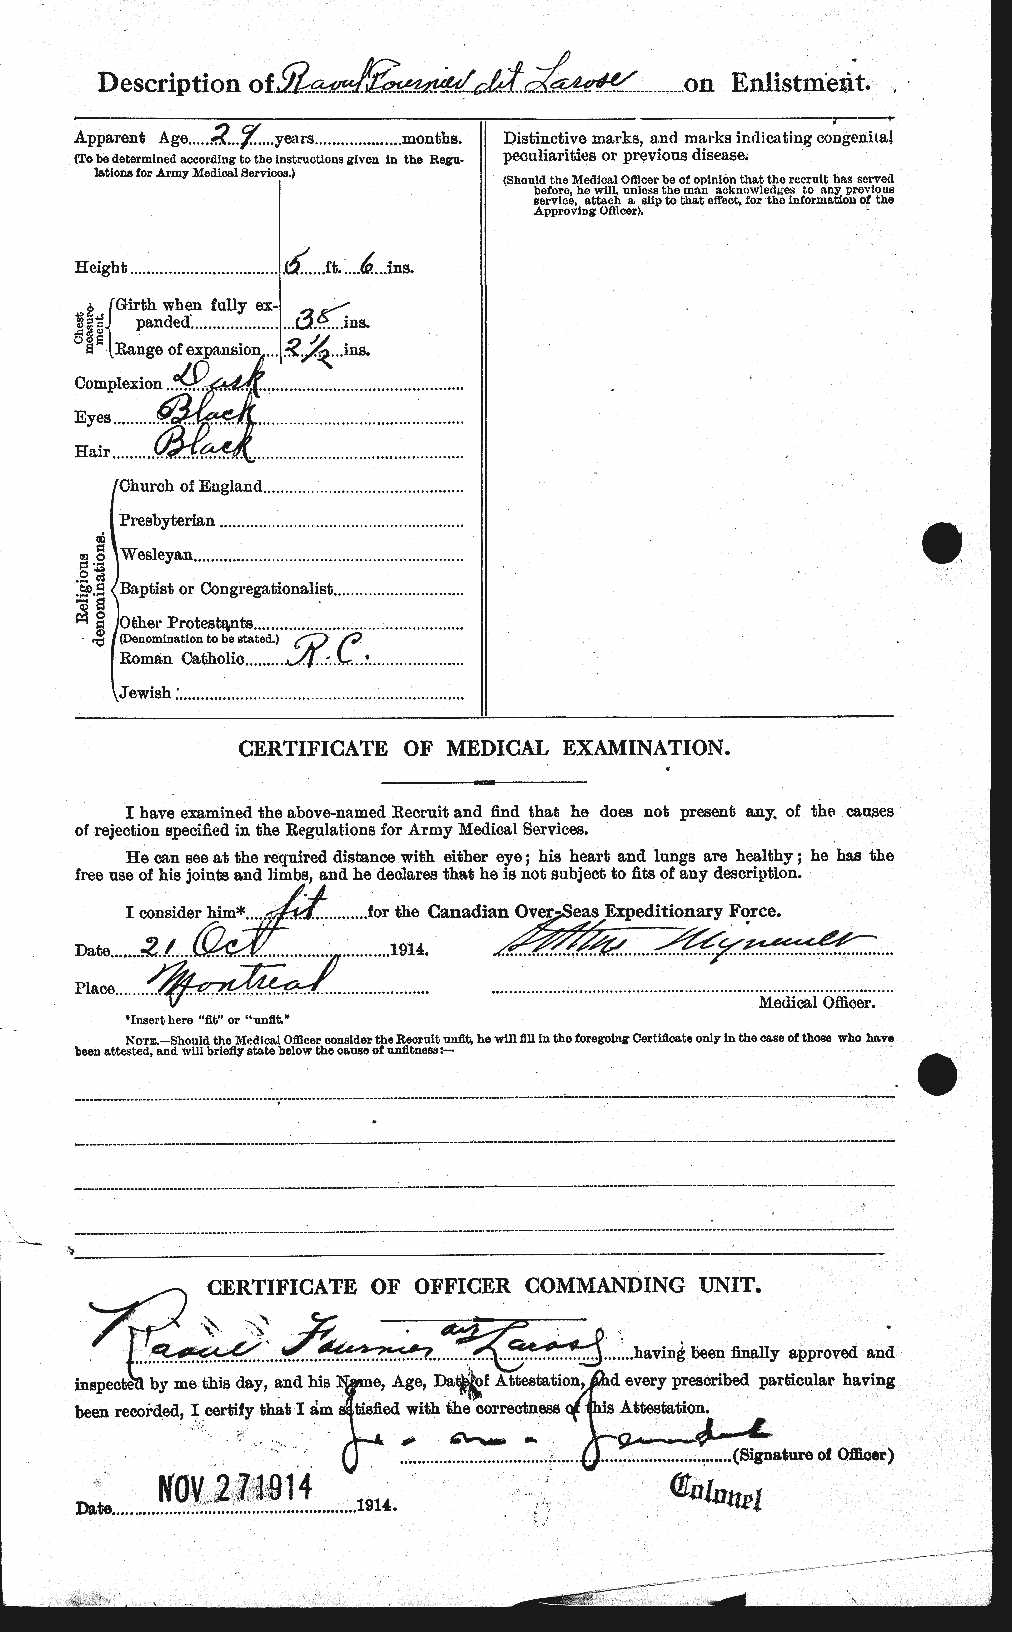 Description of Raoul Fournier dit Larose on Enlistment.
Apparent Age 29 years months.
(To be determined according to the instructions given in the Regu-
lations for Army Medical Services.)
Height 5 ft. 6 ins.
Chest measure-ment.
Girth when fully ex-
panded 35 ins.
Range of expansion 2 1/2 ins.
Complexion Dark
Eyes Black
Hair Black
Religious denominations.
Church of England
Presbyterian
Wesleyan
Baptist or Congregationalist
Other Protestants
(Denomination to be stated.)
Roman Catholic R.C.
Jewish
Distinctive marks, and marks indicating congenital
peculiarities or previous disease.
(Should the Medical Officer be of opinion that the recruit has served
before, he will, unless the man acknowledges to any previous
service, attach a slip to that effect, for the information of the
Approving Officer).
CERTIFICATE OF MEDICAL EXAMINATION.
I have examined the above-named Recruit and find that he does not present any of the causes
of rejection specified in the Regulations for Army Medical Services.
He can see at the required distance with either eye; his heart and lungs are healthy; he has the
free use of his joints and limbs, and he declares that he is not subject to fits of any description.
I consider him* fit for the Canadian Over-Seas Expeditionary Force.
Date 21 Oct 1914.
Place Montreal
Medical Officer.
*Insert here "fit" or "unfit."
NOTE.—Should the Medical Officer consider the Recruit unfit, he will fill in the foregoing Certificate only in the case of those who have
been attested, and will briefly state below the cause of unfitness:—
CERTIFICATE OF OFFICER COMMANDING UNIT.
Raoul Fournier dit Larose having been finally approved and
inspected by me this day, and his Name, Age, Date of Attestation, and every prescribed particular having
been recorded, I certify that I am satisfied with the correctness of this Attestation.
(Signature of Officer)
Colonel
NOV 27 1914
Date 1914.